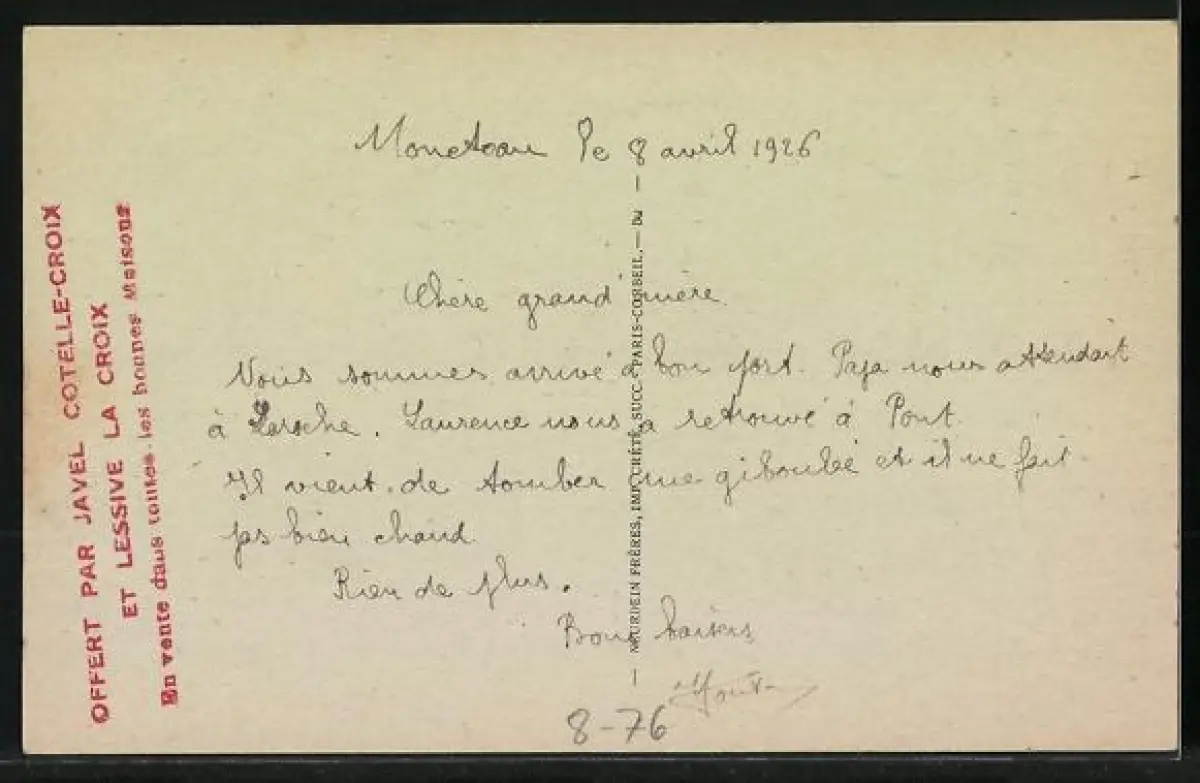 Moneteau le 8 avril 1926
Chère grand'mère
Nous sommes arrivé à bon port. Papa nous attendait
à Laroche. Laurence nous a retrouvé à Pont.
Il vient de tomber une giboulée et il ne fait
pas bien chaud.
Rien de plus.
Bons baisers
8-76
OFFERT PAR JAVEL COTELLE-CROIX
ET LESSIVE LA CROIX
En vente dans toutes les bonnes Maisons
NEURDEIN FRÈRES, IMP. CRÉTÉ, SUCC. PARIS-CORBEIL. — Bd